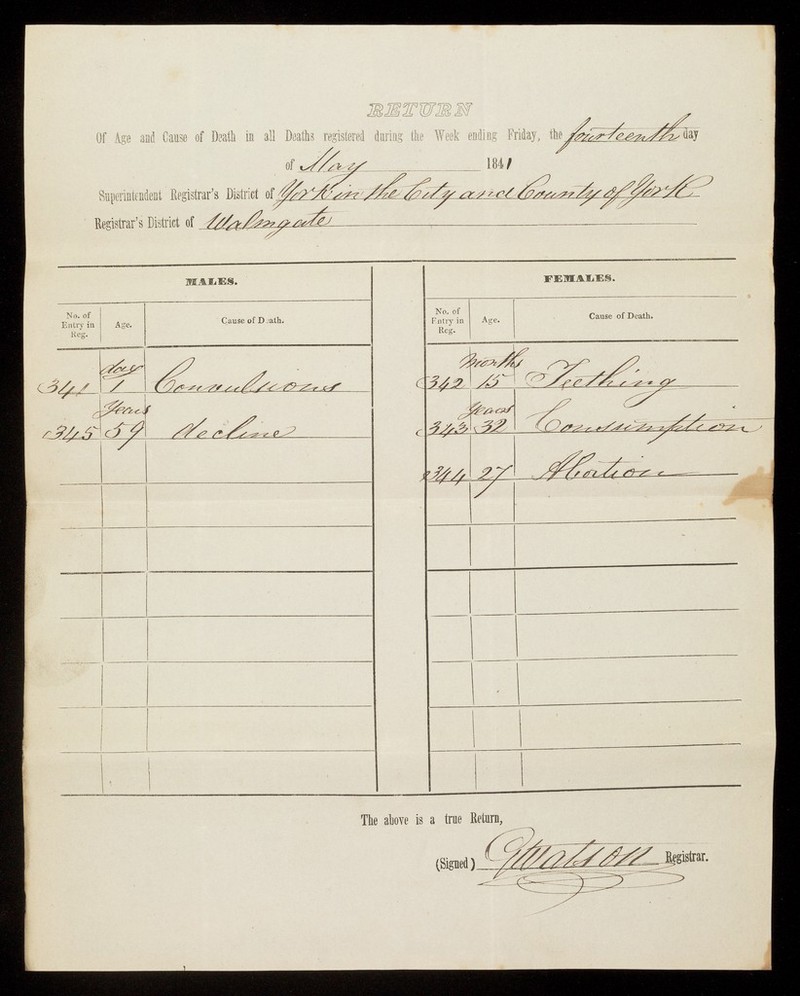 RETURN
Of Age and Cause of Death in all Deaths registered during the Week ending Friday, the fourteenth day
of May 1841
Superintendent Registrar's District of York in the City and County of York
Registrar's District of Walmgate
MALES.
No. of Entry in Reg. Age. Cause of Death.
day
341 1 Convulsions
Years
345 59 decline
FEMALES.
No. of Entry in Reg. Age. Cause of Death.
Months
342 15 Teething
Years
343 32 Consumption
344 27 Abortion
The above is a true Return,
(Signed) Watson Registrar.